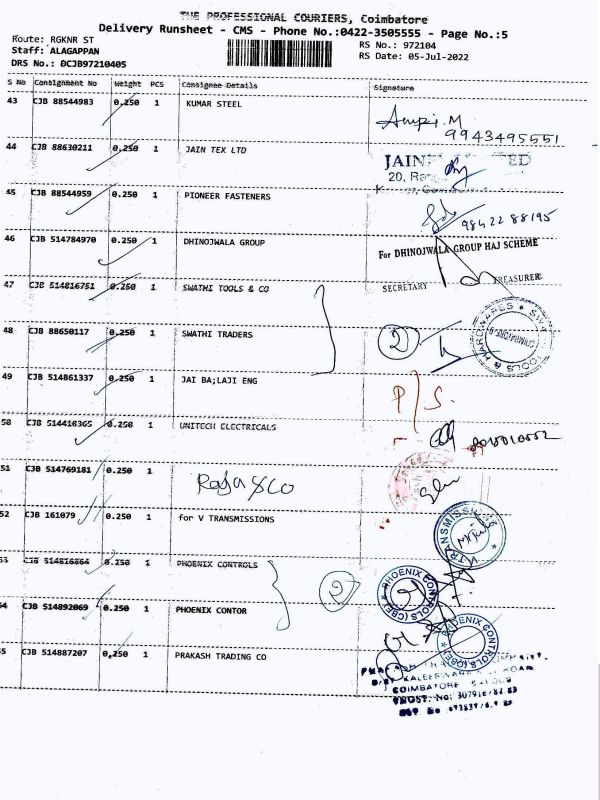 THE PROFESSIONAL COURIERS, Coimbatore
Delivery Runsheet - CMS - Phone No.:0422-3505555 - Page No.:5
Route: RGKNR ST
Staff: ALAGAPPAN
DRS No.: DCJB97210405
RS No.: 972104
RS Date: 05-Jul-2022
S No Consignment No Weight PCS Consignee Details Signature
43 CJB 88544983 0.250 1 KUMAR STEEL
9943495551
44 CJB 88630211 0.250 1 JAIN TEX LTD
JAIN
20,
45 CJB 88544959 0.250 1 PIONEER FASTENERS
98422 88195
46 CJB 514784970 0.250 1 DHINOJWALA GROUP
For DHINOJWALA GROUP HAJ SCHEME
SECRETARY TREASURER
47 CJB 514816751 0.250 1 SWATHI TOOLS & CO
48 CJB 88650117 0.250 1 SWATHI TRADERS
2
TOOLS & HARDWARES
49 CJB 514861337 0.250 1 JAI BA;LAJI ENG
P/S.
50 CJB 514410365 0.250 1 UNITECH ELECTRICALS
51 CJB 514769181 0.250 1 Raja & Co
52 CJB 161079 0.250 1 for V TRANSMISSIONS
V TRANSMISSIONS
53 CJB 514816864 0.250 1 PHOENIX CONTROLS
54 CJB 514892069 0.250 1 PHOENIX CONTOR
2
PHOENIX CONTROLS (CBE)
PHOENIX CONTROLS (CBE)
55 CJB 514887207 0.250 1 PRAKASH TRADING CO
COIMBATORE